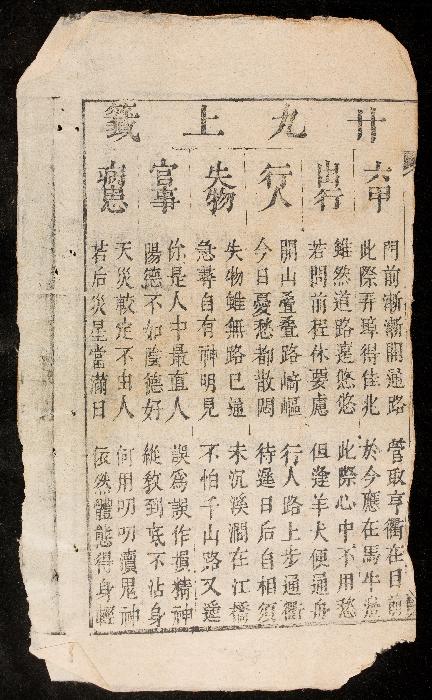 廿九上籤
六甲
門前漸漸開通路 管取亨衢在目前
此際弄璋得佳兆 於今應在馬牛
出行
雖然道路悠悠 此際心中不用愁
若問前程休要慮 但逢羊犬便通舟
行人
開山疊疊路崎嶇 行人路上步通衢
今日憂愁都散悶 待遲日后自相須
失物
失物雖無路已通 未沉溪澗在江橋
急尋自有神明見 不怕千山路又遙
官事
你是人中最直人 誤為誤作損精神
陽德不如陰德好 縱教到底不沾身
病患
天災較定不由人 何用叨叨瀆鬼神
若后災星當滿日 依然體態得身輕